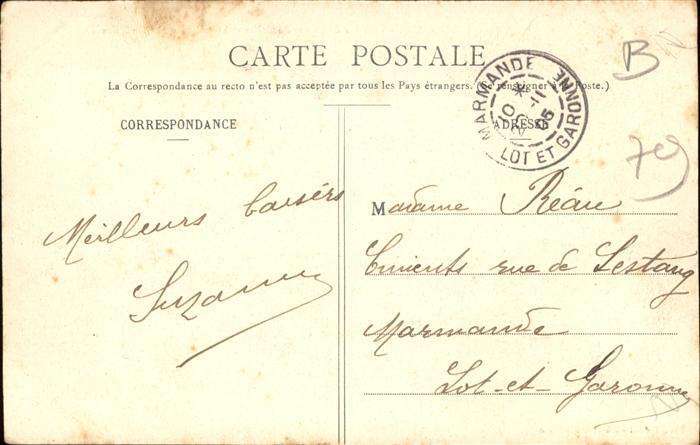 CARTE POSTALE
La Correspondance au recto n'est pas acceptée par tous les Pays étrangers. (Se renseigner à la Poste.)
CORRESPONDANCE
ADRESSE
MARMANDE
LOT ET GARONNE
B
79
Meilleurs baisers
Suzanne
Madame Réau
Ciments rue de Lestang
Marmande
Lot-et-Garonne